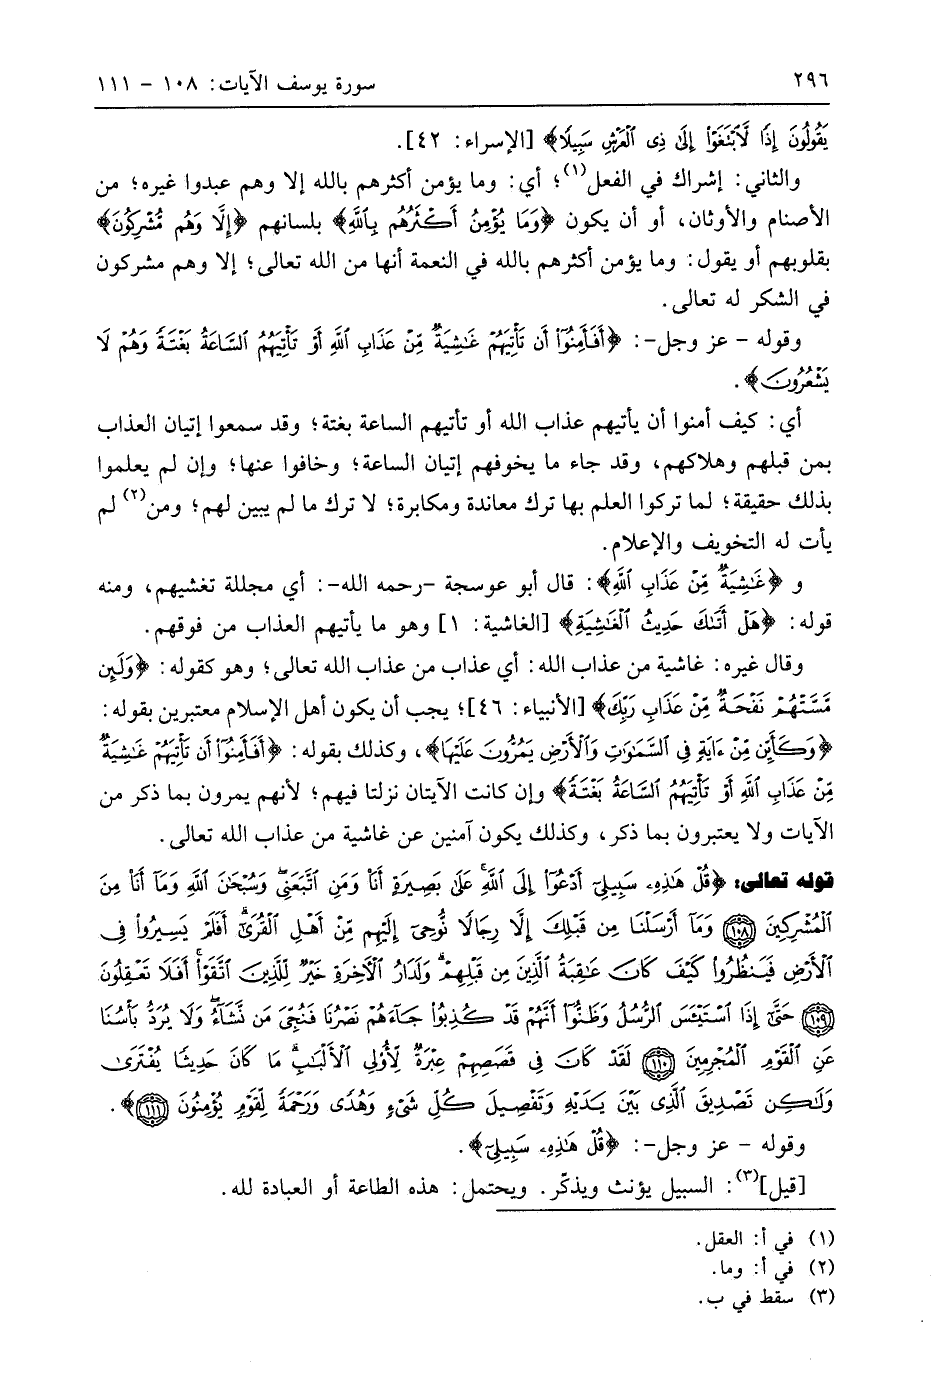 ٢٩٦ سورة يوسف الآيات: ١٠٨ - ١١١
يَقُولُونَ إِذًا لَّابْتَغَوْا إِلَىٰ ذِي الْعَرْشِ سَبِيلًا﴾ [الإسراء: ٤٢].
والثاني: إشراك في الفعل(١)؛ أي: وما يؤمن أكثرهم بالله إلا وهم عبدوا غيره؛ من
الأصنام والأوثان، أو أن يكون ﴿وَمَا يُؤْمِنُ أَكْثَرُهُم بِاللَّهِ﴾ بلسانهم ﴿إِلَّا وَهُم مُّشْرِكُونَ﴾
بقلوبهم أو يقول: وما يؤمن أكثرهم بالله في النعمة أنها من الله تعالى؛ إلا وهم مشركون
في الشكر له تعالى.
وقوله - عز وجل-: ﴿أَفَأَمِنُوا أَن تَأْتِيَهُمْ غَاشِيَةٌ مِّنْ عَذَابِ اللَّهِ أَوْ تَأْتِيَهُمُ السَّاعَةُ بَغْتَةً وَهُمْ لَا
يَشْعُرُونَ﴾.
أي: كيف أمنوا أن يأتيهم عذاب الله أو تأتيهم الساعة بغتة؛ وقد سمعوا إتيان العذاب
بمن قبلهم وهلاكهم، وقد جاء ما يخوفهم إتيان الساعة؛ وخافوا عنها؛ وإن لم يعلموا
بذلك حقيقة؛ لما تركوا العلم بها ترك معاندة ومكابرة؛ لا ترك ما لم يبين لهم؛ ومن(٢) لم
يأت له التخويف والإعلام.
و ﴿غَاشِيَةٌ مِّنْ عَذَابِ اللَّهِ﴾: قال أبو عوسجة -رحمه الله-: أي مجللة تغشيهم، ومنه
قوله: ﴿هَلْ أَتَاكَ حَدِيثُ الْغَاشِيَةِ﴾ [الغاشية: ١] وهو ما يأتيهم العذاب من فوقهم.
وقال غيره: غاشية من عذاب الله: أي عذاب من عذاب الله تعالى؛ وهو كقوله: ﴿وَلَئِن
مَّسَّتْهُمْ نَفْحَةٌ مِّنْ عَذَابِ رَبِّكَ﴾ [الأنبياء: ٤٦]؛ يجب أن يكون أهل الإسلام معتبرين بقوله:
﴿وَكَأَيِّن مِّنْ ءَايَةٍ فِي السَّمَاوَاتِ وَالْأَرْضِ يَمُرُّونَ عَلَيْهَا﴾، وكذلك بقوله: ﴿أَفَأَمِنُوا أَن تَأْتِيَهُمْ غَاشِيَةٌ
مِّنْ عَذَابِ اللَّهِ أَوْ تَأْتِيَهُمُ السَّاعَةُ بَغْتَةً﴾ وإن كانت الآيتان نزلتا فيهم؛ لأنهم يمرون بما ذكر من
الآيات ولا يعتبرون بما ذكر، وكذلك يكون آمنين عن غاشية من عذاب الله تعالى.
قوله تعالى: ﴿قُلْ هَٰذِهِ سَبِيلِي أَدْعُو إِلَى اللَّهِ عَلَىٰ بَصِيرَةٍ أَنَا وَمَنِ اتَّبَعَنِي وَسُبْحَانَ اللَّهِ وَمَا أَنَا مِنَ
الْمُشْرِكِينَ ١٠٨ وَمَا أَرْسَلْنَا مِن قَبْلِكَ إِلَّا رِجَالًا نُّوحِي إِلَيْهِم مِّنْ أَهْلِ الْقُرَىٰ أَفَلَمْ يَسِيرُوا فِي
الْأَرْضِ فَيَنظُرُوا كَيْفَ كَانَ عَاقِبَةُ الَّذِينَ مِن قَبْلِهِمْ وَلَدَارُ الْآخِرَةِ خَيْرٌ لِّلَّذِينَ اتَّقَوْا أَفَلَا تَعْقِلُونَ
١٠٩ حَتَّىٰ إِذَا اسْتَيْئَسَ الرُّسُلُ وَظَنُّوا أَنَّهُمْ قَدْ كُذِبُوا جَاءَهُمْ نَصْرُنَا فَنُجِّيَ مَن نَّشَاءُ وَلَا يُرَدُّ بَأْسُنَا
عَنِ الْقَوْمِ الْمُجْرِمِينَ ١١٠ لَقَدْ كَانَ فِي قَصَصِهِمْ عِبْرَةٌ لِّأُولِي الْأَلْبَابِ مَا كَانَ حَدِيثًا يُفْتَرَىٰ
وَلَٰكِن تَصْدِيقَ الَّذِي بَيْنَ يَدَيْهِ وَتَفْصِيلَ كُلِّ شَيْءٍ وَهُدًى وَرَحْمَةً لِّقَوْمٍ يُؤْمِنُونَ ١١١﴾.
وقوله - عز وجل-: ﴿قُلْ هَٰذِهِ سَبِيلِي﴾.
[قيل](٣): السبيل يؤنث ويذكّر. ويحتمل: هذه الطاعة أو العبادة لله.
(١) في أ: العقل.
(٢) في أ: وما.
(٣) سقط في ب.